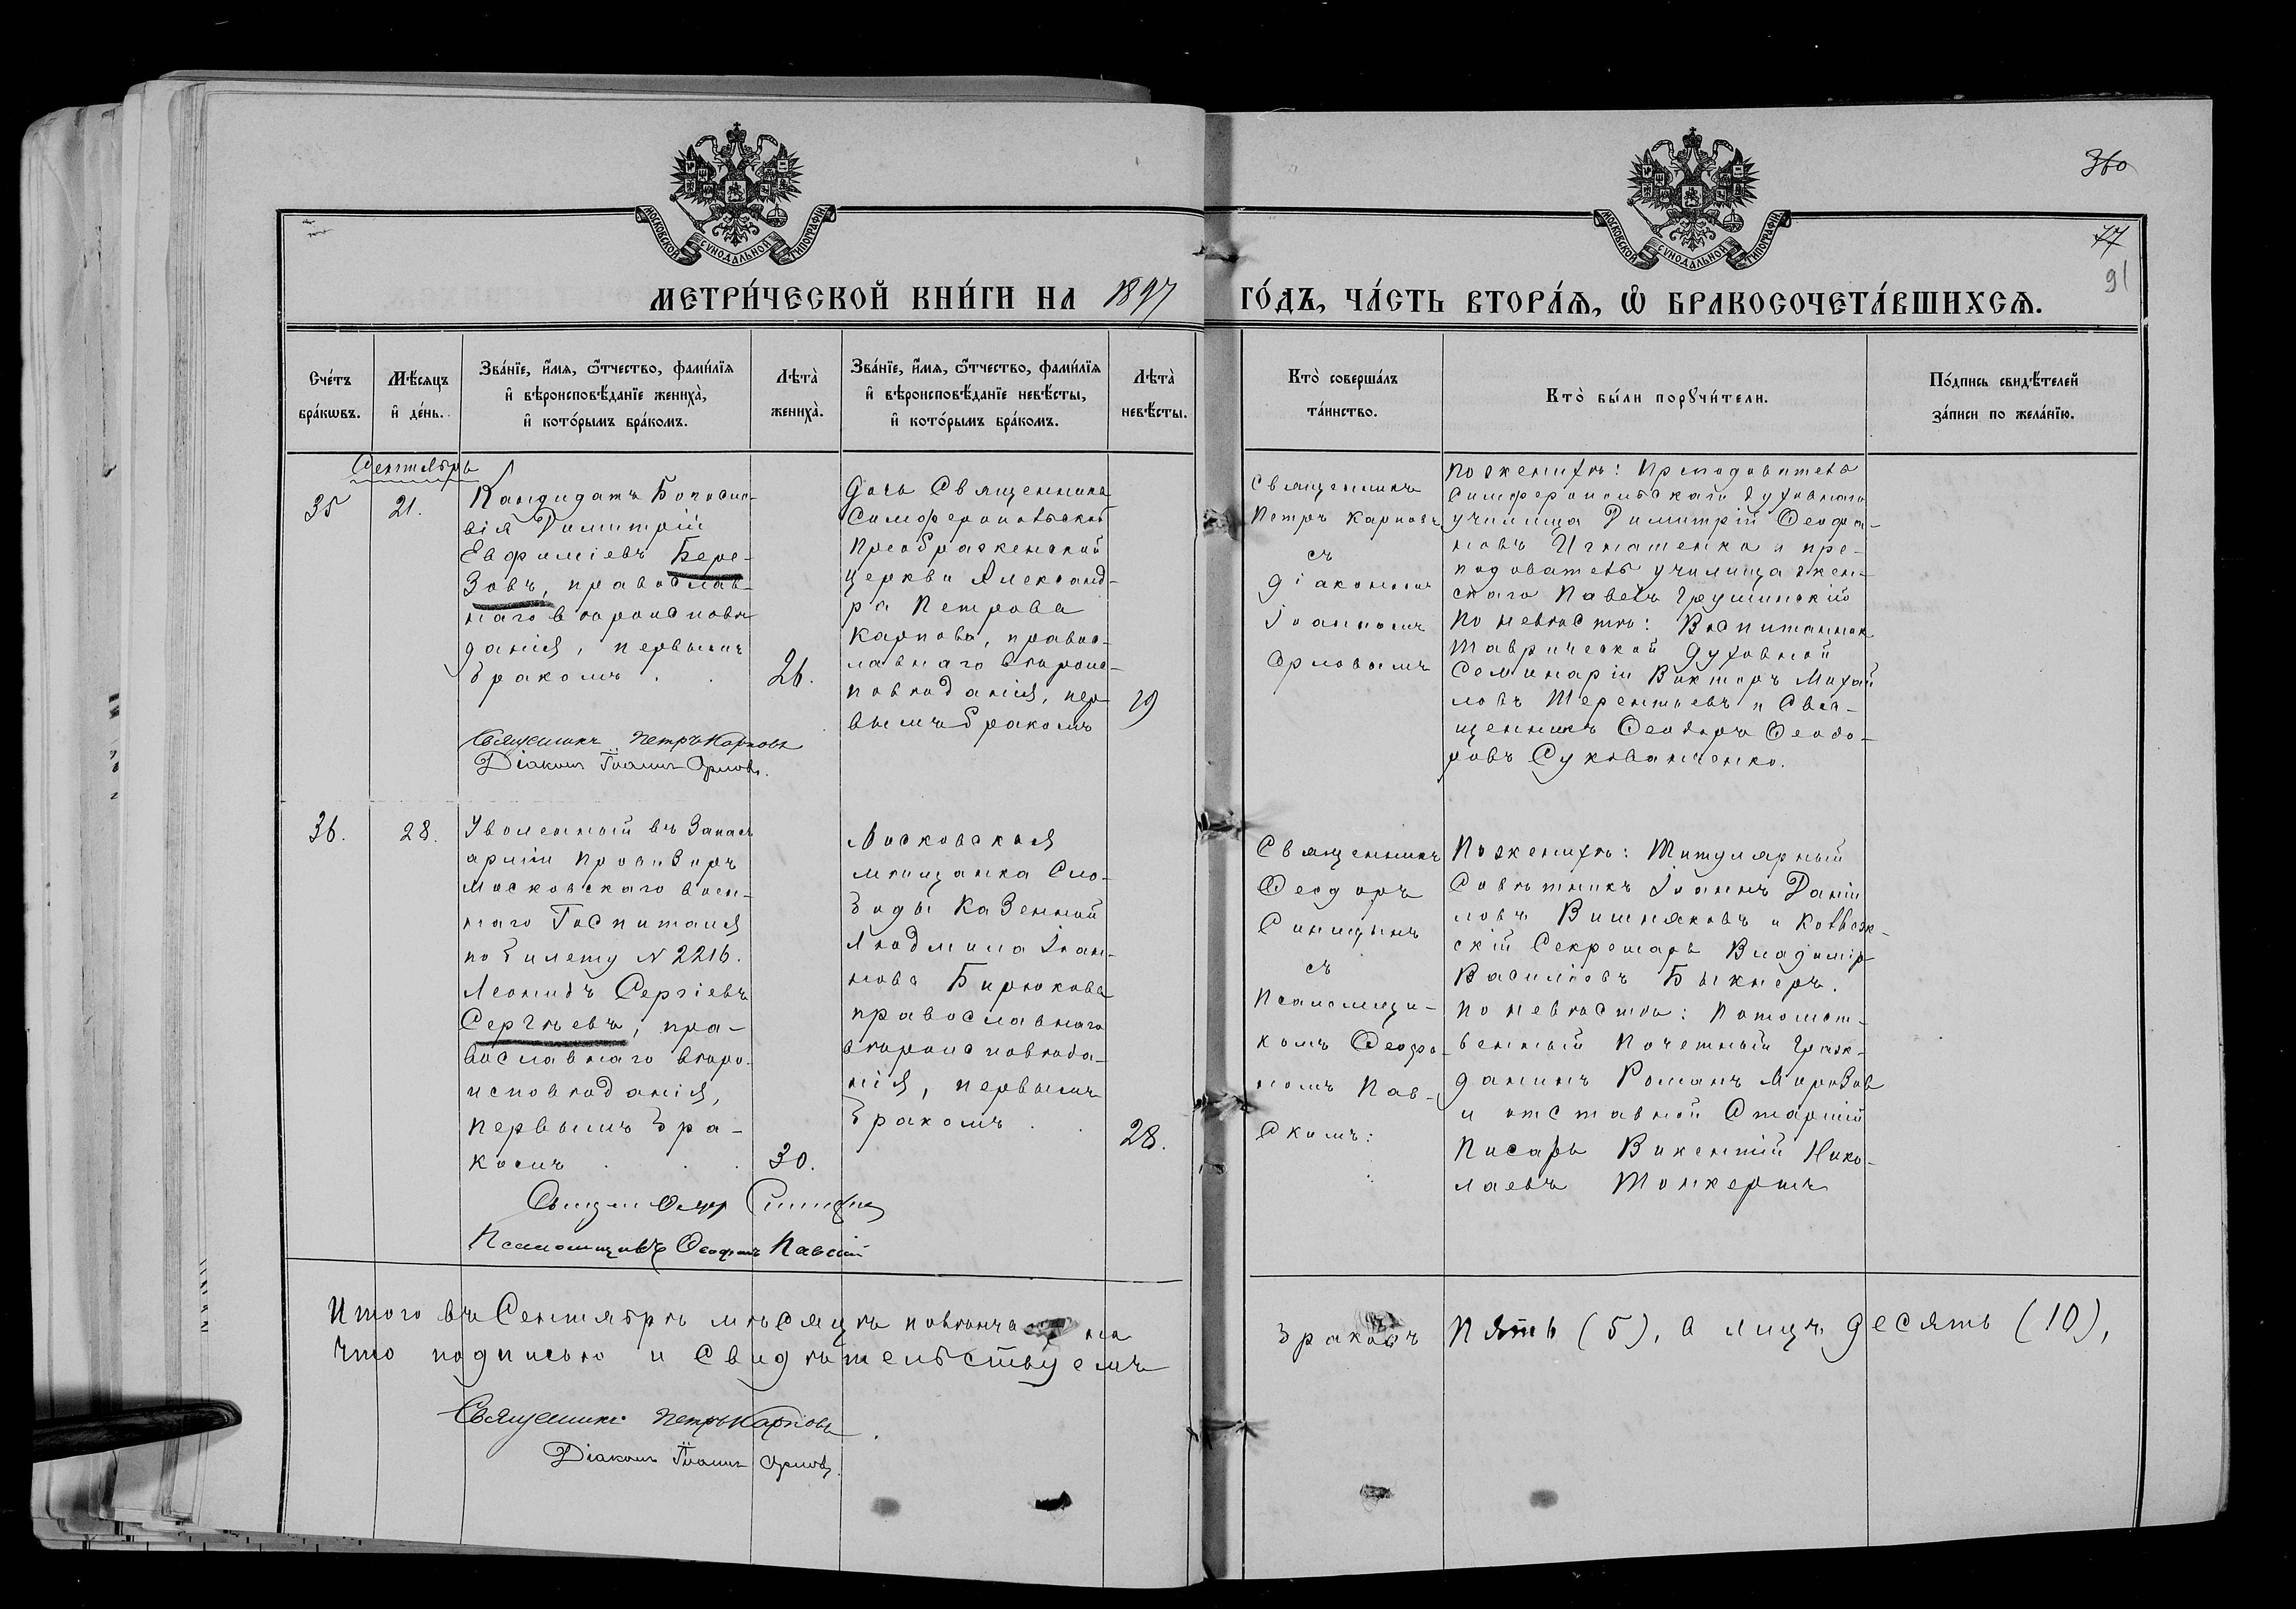 360
МОСКОВСКОЙ СУНОДАЛЬНОЙ ТИПОГРАФІИ
МОСКОВСКОЙ СУНОДАЛЬНОЙ ТИПОГРАФІИ
77
91
МЕТРИ́ЧЕСКОЙ КНИ́ГИ НА 1897 ГО́ДЪ, ЧА́СТЬ ВТОРА́Ѧ, Ѽ БРАКОСОЧЕТА́ВШИХСѦ.
Сче́тъ
бра́кѡвъ.
Мѣ́сяцъ
и҆ де́нь.
Зва́нїе, и҆́мя, ѿтчество, фами́лїя
и҆ вѣроисповѣ́данїе жениха̀,
и҆ кото́рымъ бра́комъ.
Лѣта̀
жениха̀.
Зва́нїе, и҆́мя, ѿтчество, фами́лїя
и҆ вѣроисповѣ́данїе невѣ́сты,
и҆ кото́рымъ бра́комъ.
Лѣта̀
невѣ́сты.
Кто̀ соверша́лъ
та́инство.
Кто̀ бы́ли порꙋчи́тели.
По́дпись свидѣ́телей
за́писи по жела́нїю.
Сентябрь
35
21.
Кандидатъ Богосло-
вія Димитрій
Евфиміевъ Бере-
зовъ, православ-
наго вѣроисповѣ
данія, первымъ
бракомъ.
26.
Дочь Священника
Симферопольской
Преображенской
церкви Александ-
ра Петрова
Карпова, правос-
лавнаго вѣроис-
повѣданія, пер-
вымъ бракомъ
19
Священникъ
Петръ Карповъ
съ
діакономъ
Іоанномъ
Орловымъ
По женихѣ: Преподаватель
Симферопольскаго духовнаго
училища Димитрій Ѳеофа-
новъ Игнатенко и пре-
подаватель училища жен-
скаго Павелъ Грушинскій
По невѣстѣ: Воспитанник
Таврической духовной
Семинаріи Викторъ Михай
ловъ Терентьевъ и Свя-
щенникъ Ѳеодоръ Ѳеодо-
ровъ Сукованченко.
Священникъ Петръ Карповъ
Діаконъ Іоаннъ Орловъ.
36.
28.
Уволенный въ Запасъ
арміи провизоръ
Московскаго воен-
наго Госпиталя
по билету N 2216.
Леонидъ Сергіевъ
Сергѣевъ, пра-
вославнаго вѣро-
исповѣданія,
первымъ бра-
комъ
30.
Московская
мѣщанка Сло-
боды Казенной
Людмила Іоан-
нова Бирюкова
православнаго
вѣроисповѣда-
нія, первымъ
бракомъ
28.
Священникъ
Ѳеодоръ
Синицынъ
съ
Псаломщи-
комъ Ѳеофа-
номъ Пав-
скимъ:
По женихѣ: Титулярный
Совѣтникъ Іоаннъ Даніи
ловъ Вишняковъ и Коллеж-
скій Секретарь Владиміръ
Василіевъ Быкнеръ.
по невѣстѣ: Потомст-
венный Почетный Граж-
данинъ Романъ Морозов
и отставной Старшій
Писарь Викентій Нико-
лаевъ
Псаломщикъ Ѳеофанъ Павскій
Итого въ Сентябрѣ мѣсяцѣ повѣнчано браковъ пять (5), а лицъ десять (10),
что подписью и свидѣтельствуемъ
Священникъ Петръ Карповъ.
Діаконъ Іоаннъ Орловъ.